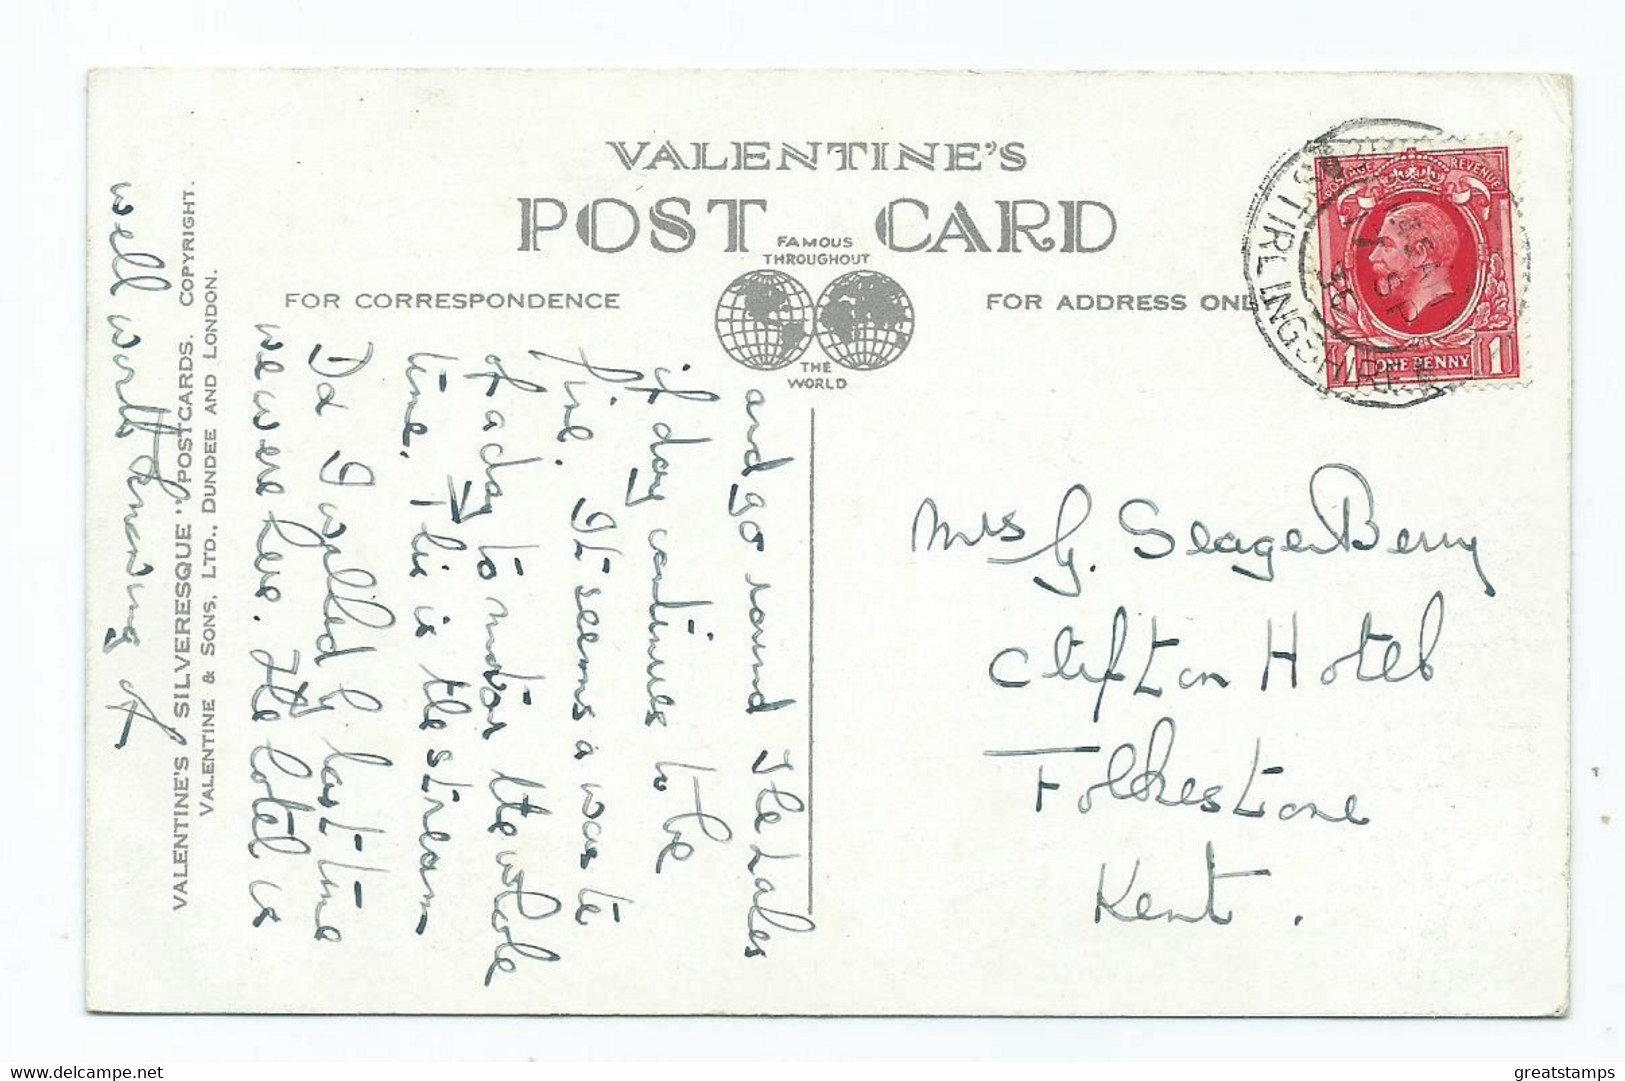 VALENTINE'S
POST CARD
FAMOUS
THROUGHOUT
THE
WORLD
FOR CORRESPONDENCE
FOR ADDRESS ONL
POSTAGE REVENUE
ONE PENNY
1 1
STIRLINGSHIRE
SP
36
Mrs G. Seager Berry
Clifton Hotel
Folkestone
Kent.
and go round the Lakes
if day continues to be
fine. It seems a waste
of a day to motor the whole
time. This is the stream
Da I walked by last time
we were here. The hotel is
well worth knowing of
VALENTINE'S "SILVERESQUE" POSTCARDS. COPYRIGHT.
VALENTINE & SONS, LTD., DUNDEE AND LONDON.
greatstamps